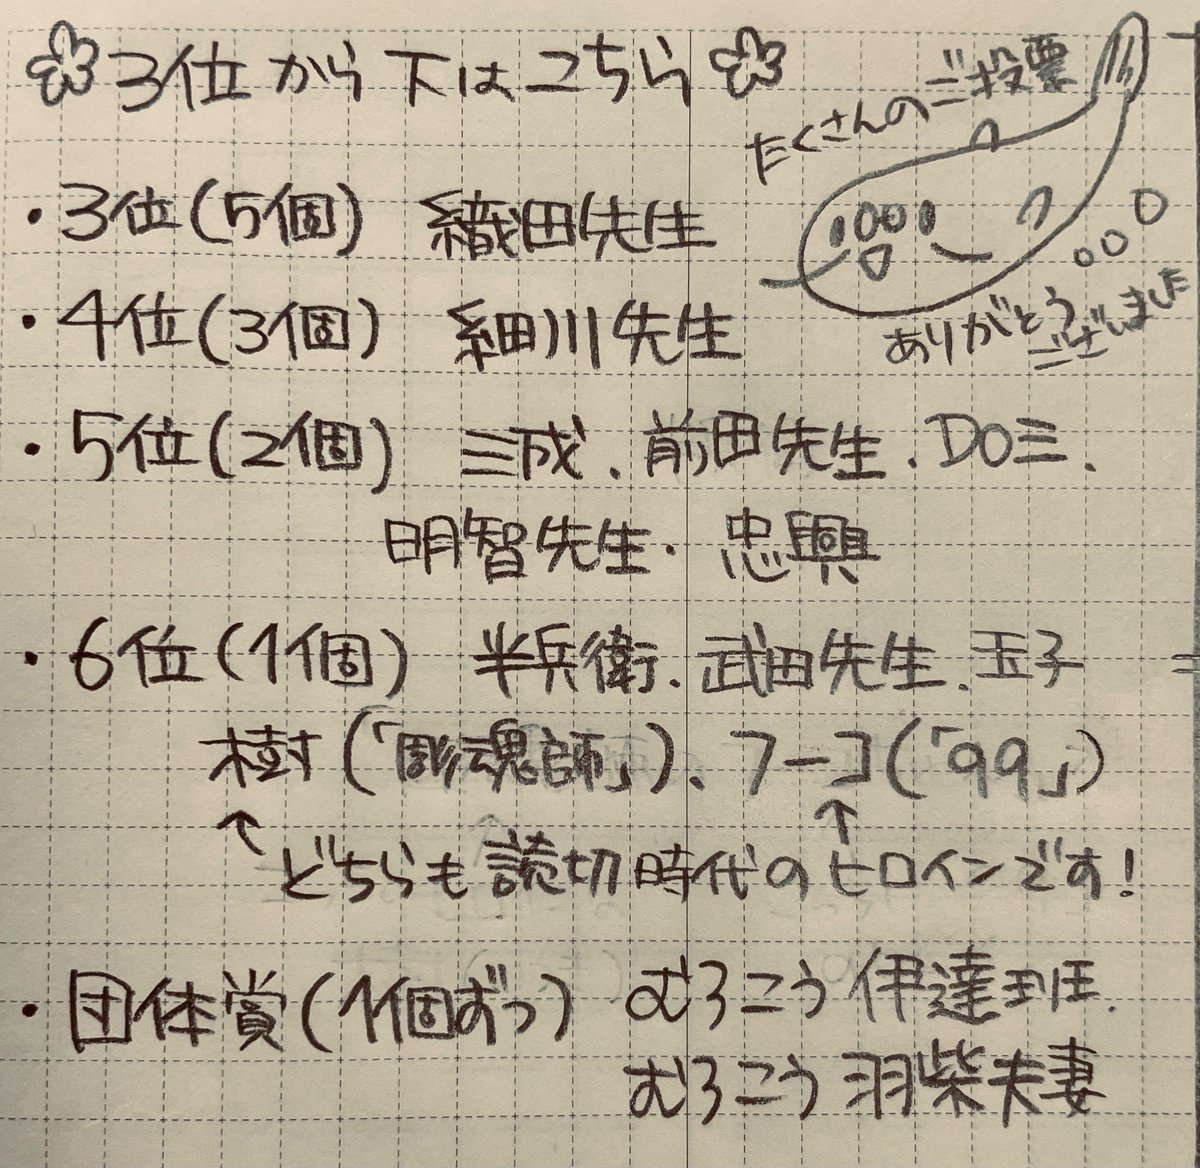 3位から下はこちら
たくさんのご投票
ありがとう
ございました
・3位(5個) 織田先生
・4位(3個) 細川先生
・5位(2個) 三成、前田先生、DO三、
明智先生・忠興
・6位(1個) 半兵衛、武田先生、玉子
樹(「彫魂師」)、フーコ(「99」)
↑ ↑
どちらも読切時代のヒロインです!
・団体賞(1個ずつ) むろこう伊達班、
むろこう羽柴夫妻